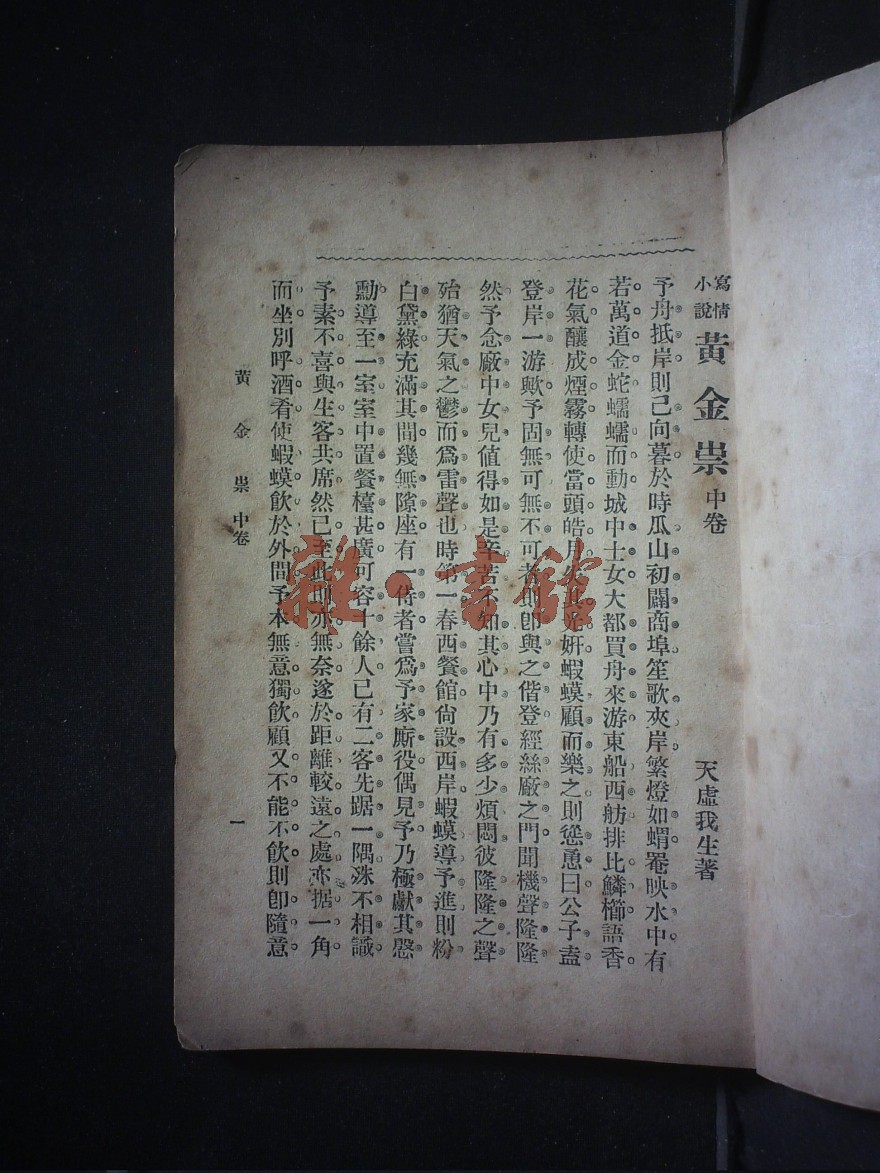 寫情小說 黃金祟 中卷
天虛我生著
予舟抵岸則已向暮於時瓜山初闢商埠笙歌夾岸繁燈如蝟罨映水中有
若萬道金蛇蠕蠕而動城中士女大都買舟來游東船西舫排比鱗櫛語香
花氣釀成煙霧轉使當頭皓月失其光妍蝦蟆顧而樂之則慫恿曰公子盍
登岸一游歟予固無可無不可者即與之偕登經絲廠之門聞機聲隆隆
然予念廠中女兒値得如是辛苦不知其心中乃有多少煩悶彼隆隆之聲
殆猶天氣之鬱而爲雷聲也時第一春西餐館尙設西岸蝦蟆導予進則粉
白黛綠充滿其間幾無隙座有一侍者嘗爲予家廝役偶見予乃極獻其慇
懃導至一室室中置餐檯甚廣可容十餘人已有二客先踞一隅洙不相識
予素不喜與生客共席然已至此則亦無奈遂於距離較遠之處亦据一角
而坐別呼酒肴使蝦蟆飮於外間予本無意獨飮顧又不能不飮則卽隨意
黃金祟 中卷
一
雜·書館